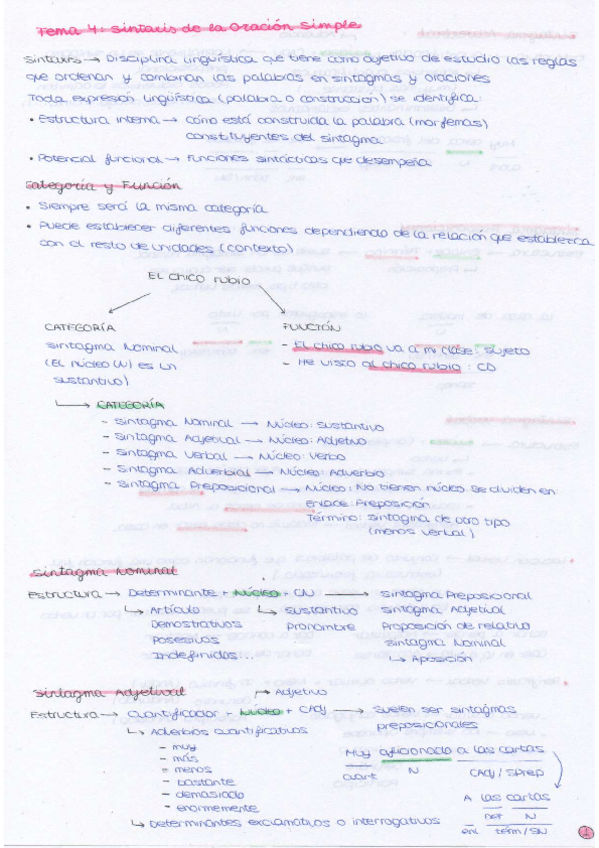 Tema 4: Sintaxis de la Oración Simple
Sintaxis → Disciplina lingüística que tiene como objetivo de estudio las reglas
que ordenan y combinan las palabras en sintagmas y oraciones
Toda expresión lingüística (palabra o construcción) se identifica:
• Estructura interna → cómo está construida la palabra (morfemas)
constituyentes del sintagma
• Potencial funcional → Funciones sintácticas que desempeña
Categoría y Función
• Siempre será la misma categoría
• Puede establecer diferentes funciones dependiendo de la relación que establezca
con el resto de unidades (contexto)
El chico rubio
CATEGORÍA
Sintagma Nominal
(El núcleo (N) es un
sustantivo)
FUNCIÓN
- El chico rubio va a mi clase: Sujeto
- He visto al chico rubio: CD
CATEGORÍA
- Sintagma Nominal → Núcleo: Sustantivo
- Sintagma Adjetival → Núcleo: Adjetivo
- Sintagma Verbal → Núcleo: Verbo
- Sintagma Adverbial → Núcleo: Adverbio
- Sintagma Preposicional → Núcleo: No tienen núcleo se dividen en
enlace: Preposición
Término: Sintagma de otro tipo
(menos verbal)
Sintagma Nominal
Estructura → Determinante + Núcleo + CN → Sintagma Preposicional
↳ Artículo ↳ Sustantivo Sintagma Adjetival
Demostrativos Pronombre Proposición de relativo
Posesivos Sintagma Nominal
Indefinidos... ↳ Aposición
Sintagma Adjetival → Adjetivo
Estructura → Cuantificador + Núcleo + CAdj → Suelen ser sintagmas
preposicionales
↳ Adverbios cuantificativos
- muy
- más
- menos
- bastante
- demasiado
- enormemente
↳ Determinantes exclamativos o interrogativos
Muy aficionado a las cartas
cuant N CAdj / SPrep
A las cartas
Det N
enl term / SN
1